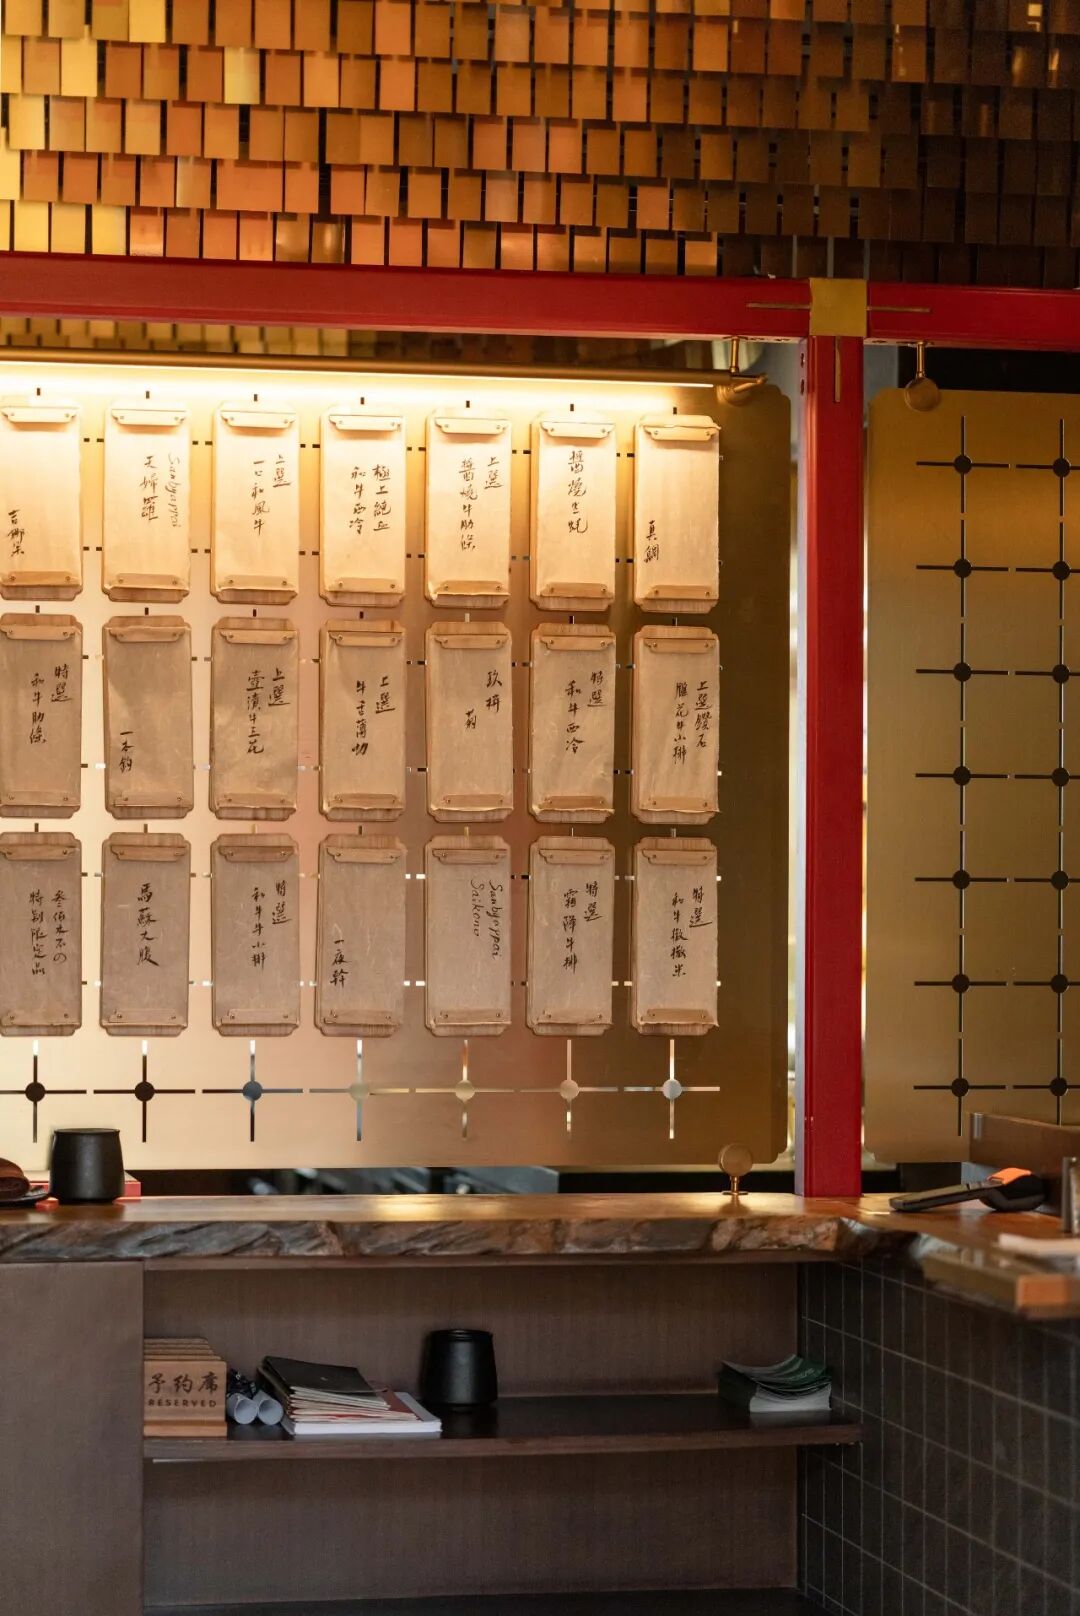 Sanbyoppai
天婦羅
上選
一心和風牛
極上純血
和牛西冷
上選
醬燒牛肋條
醬燒生蚝
真鯛
特選
和牛肋條
一本釣
上選
壺漬牛三花
上選
牛舌薄切
特選
和牛西冷
上選鑽石
雕花牛小排
特別限定品
馬蘇大腹
特選
和牛牛小排
一夜幹
Sanbyoppai
Saikono
特選
霜降牛排
特選
和牛撒撒米
予約席
RESERVED